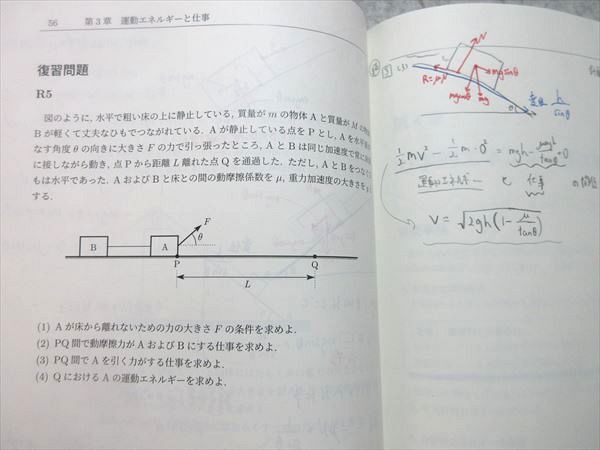 56 第3章 運動エネルギーと仕事
復習問題
R5
図のように,水平で粗い床の上に静止している,質量が m の物体 A と質量が M の物体
B が軽くて丈夫なひもでつながれている. A が静止している点を P とし, A を水平
なす角度 θ の向きに大きさ F の力で引っ張ったところ, A と B は同じ加速度で常に
に接しながら動き,点 P から距離 L 離れた点 Q を通過した.ただし, A と B をつなぐ
もは水平であった. A および B と床との間の動摩擦係数を μ,重力加速度の大きさを
する.
B A F θ
P Q
L
(1) A が床から離れないための力の大きさ F の条件を求めよ.
(2) PQ 間で動摩擦力が A および B にする仕事を求めよ.
(3) PQ 間で A を引く力がする仕事を求めよ.
(4) Q における A の運動エネルギーを求めよ.
(3)
N
R=μN
mg sinθ
mg cosθ
mg
θ
h/sinθ
1/2 mV² - 1/2 m・0² = mgh - μmgh/tanθ + 0
運動エネルギー と 仕事 の関係
V = √2gh(1 - μ/tanθ)